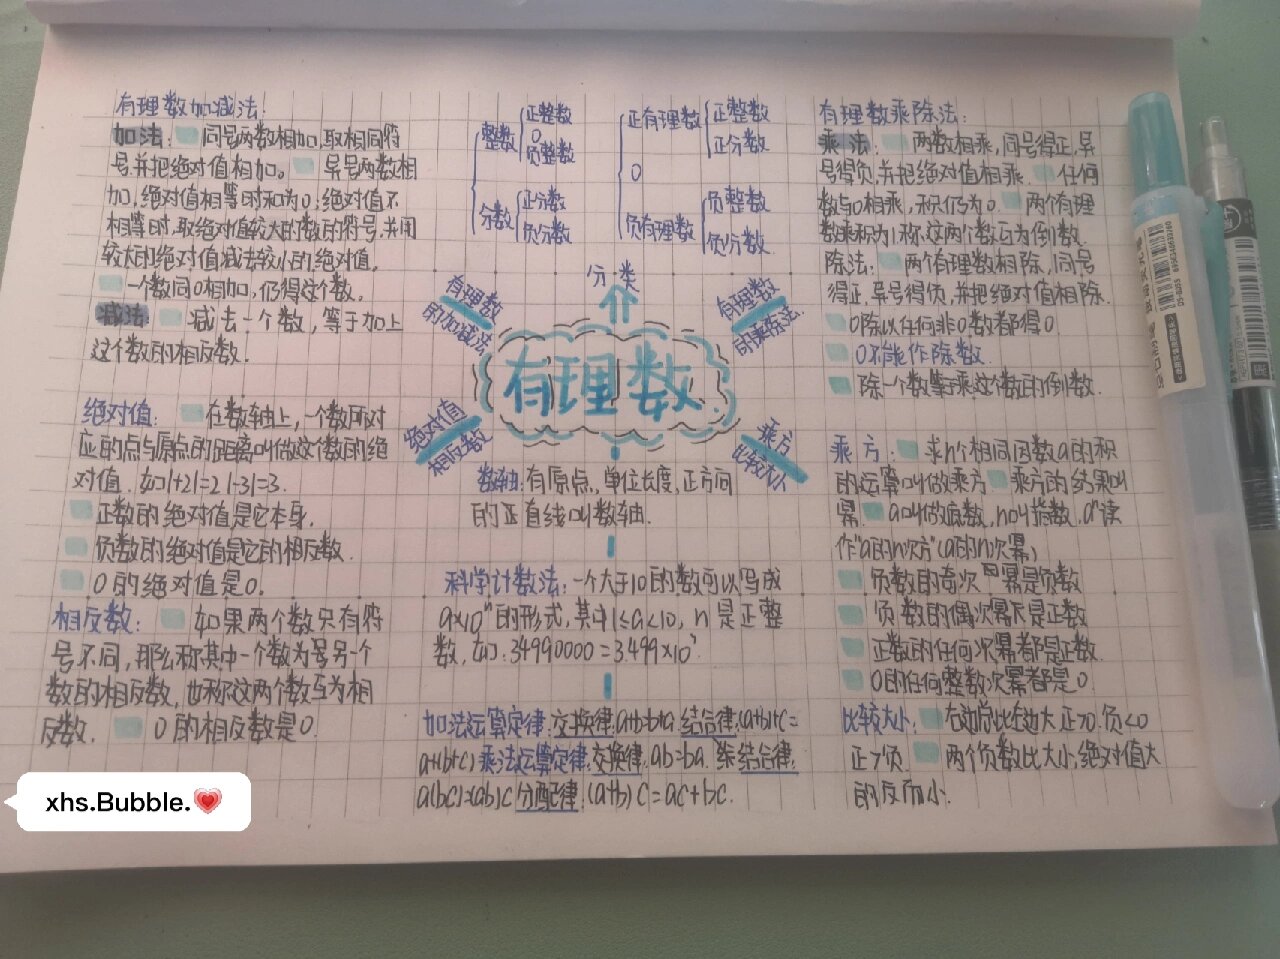 有理数加减法:
加法: 同号两数相加,取相同符
号,并把绝对值相加。 异号两数相
加,绝对值相等时和为0;绝对值不
相等时,取绝对值较大的数的符号,并用
较大的绝对值减去较小的绝对值,
一个数同0相加,仍得这个数.
减法 减去一个数, 等于加上
这个数的相反数.
绝对值: 在数轴上, 一个数所对
应的点与原点的距离叫做这个数的绝
对值. 如|+2|=2 |-3|=3.
正数的绝对值是它本身.
负数的绝对值是它的相反数.
0的绝对值是0.
相反数: 如果两个数只有符
号不同, 那么称其中一个数为号另一个
数的相反数, 也称这两个数互为相
反数. 0的相反数是0.
整数
正整数
0
负整数
分数
正分数
负分数
正有理数
正整数
正分数
0
负有理数
负整数
负分数.
分类
有理数
的加减法
有理数
的乘除法.
有理数
绝对值
相反数
乘方
比较大小
数轴: 有原点, 单位长度, 正方向
的正直线叫数轴.
科学计数法: 一个大于10的数可以写成
a×10ⁿ的形式, 其中1≤a<10, n是正整
数, 如: 34990000=3.499×10⁷
加法运算定律: 交换律:a+b=b+a 结合律:(a+b)+c=
a+(b+c) 乘法运算定律: 交换律. ab=ba. 结合律.
a(bc)=(ab)c 分配律. (a+b)c=ac+bc.
有理数乘除法:
乘法: 两数相乘, 同号得正, 异
号得负, 并把绝对值相乘. 任何
数与0相乘, 积仍为0. 两个有理
数乘积为1,称这两个数互为倒数.
除法: 两个有理数相除, 同号
得正, 异号得负, 并把绝对值相除.
0除以任何非0数都得0
0不能作除数.
除一个数等于乘这个数的倒数.
乘方: 求n个相同因数a的积
的运算叫做乘方 乘方的结果叫
幂. a叫做底数, n叫指数, aⁿ读
作"a的n次方"(a的n次幂)
负数的奇次幂是负数
负数的偶次幂是正数
正数的任何次幂都是正数.
0的任何整数次幂都是0.
比较大小: 右边总比左边大 正>0. 负<0
正>负. 两个负数比大小, 绝对值大
的反而小.
xhs.Bubble.